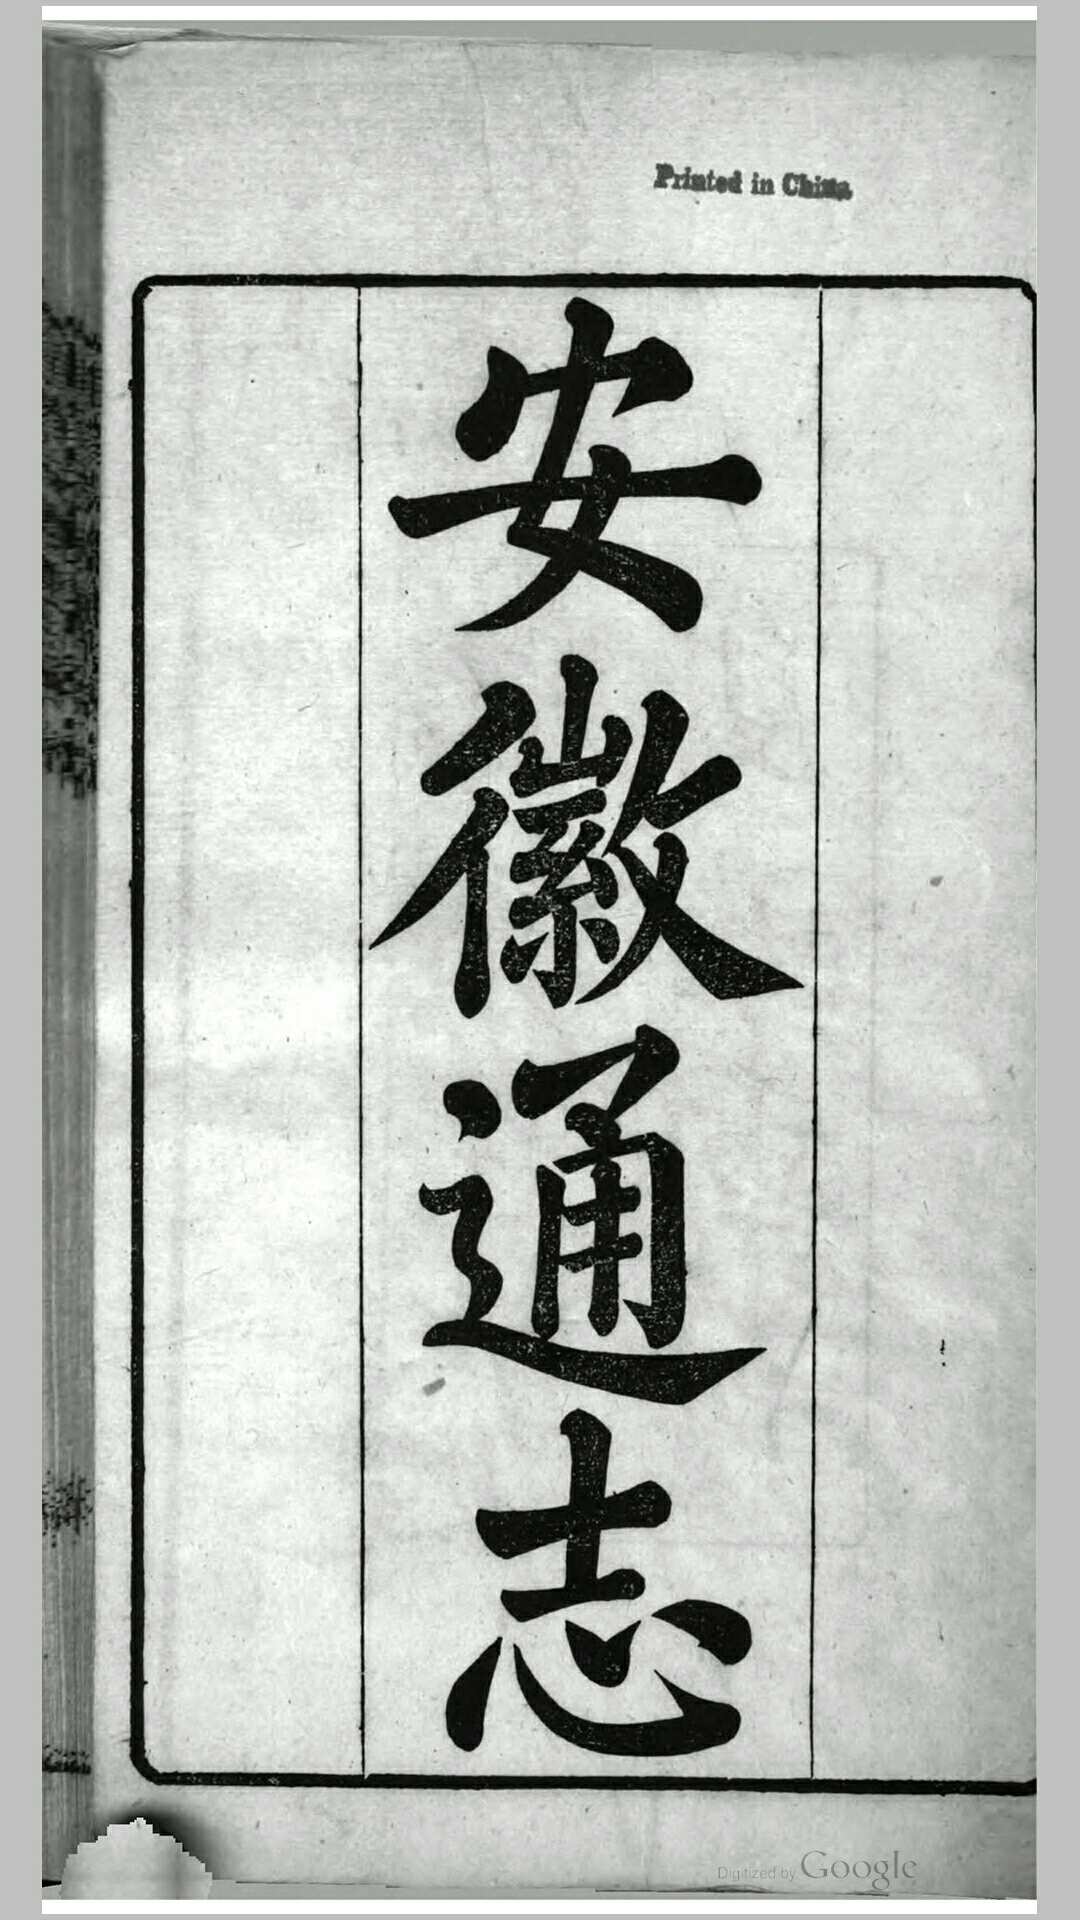 Printed in China
安徽通志
Digitized by Google